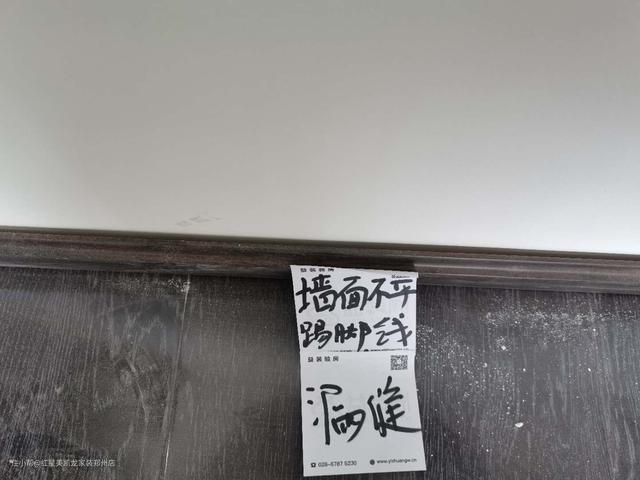 益装验房
墙面不平
踢脚线
益装验房
漏缝
028-6787 5230
www.yizhuangw.cn
住小帮@红星美凯龙家装郑州店